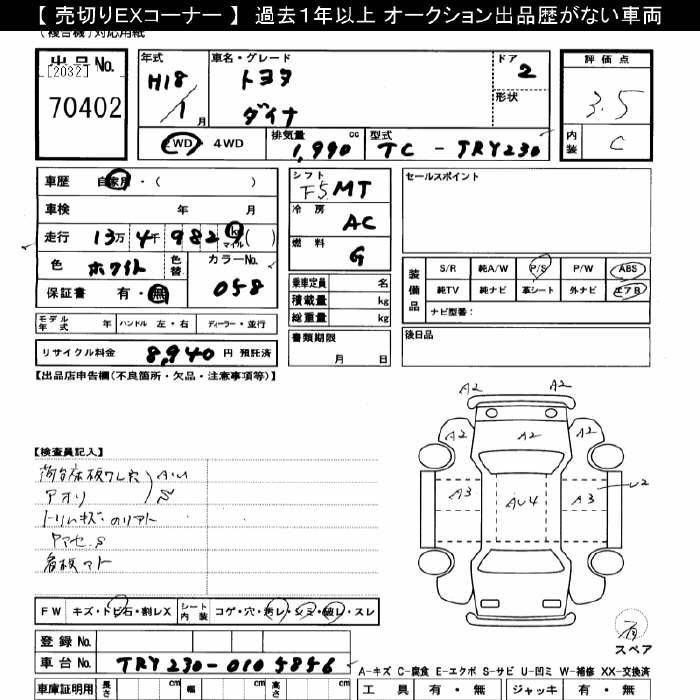 【 売切りEXコーナー 】 過去1年以上 オークション出品歴がない車両
(複合機)対応用紙
出品No.
[2032]
70402
年式
H18
1月
車名・グレード
トヨタ
ダイナ
ドア
2
形状
評価点
3.5
内装
C
2WD 4WD
排気量
1,990 cc
型式
TC - TRY230
車歴 自家用・( )
車検 年 月
走行 13万 4千 982 km マイル ( )
色 ホワイト 色替 カラーNo. 058
保証書 有・無
モデル年式 年 ハンドル 左・右 ディーラー・並行
リサイクル料金 8,940 円 預託済
シフト F5 MT
冷房 AC
燃料 G
乗車定員 名
積載量 kg
総重量 kg
書類期限
月 日
セールスポイント
装備品
S/R 純A/W P/S P/W ABS
純TV 純ナビ 革シート 外ナビ エアB
ナビ型番:
後日品
【出品店申告欄(不良箇所・欠品・注意事項等)】
【検査員記入】
アオリ
A2
A2 A2 A2
A3 AU4 A3 U2
スペア
FW キズ・トビ石・割レX シート内装 コゲ・穴・汚レ・シミ・破レ・スレ
登録No.
車台No. TRY230-0105856
車庫証明用 長さ cm 幅 cm 高さ cm
A-キズ C-腐食 E-エクボ S-サビ U-凹ミ W-補修 XX-交換済
工具 有・無 ジャッキ 有・無